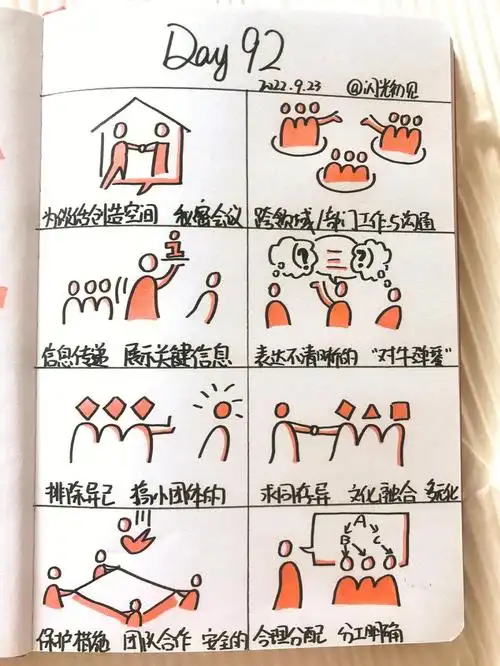 Day 92
2022.9.23 @闪光初见
为谈话创造空间 秘密会议
跨领域/部门工作与沟通
i
信息传递 展示关键信息
? ?
表达不清晰的 "对牛弹琴"
排除异己 搞小团体的
求同存异 文化融合 多元化
A
B C
保护措施 团队合作 安全的
合理分配 分工明确